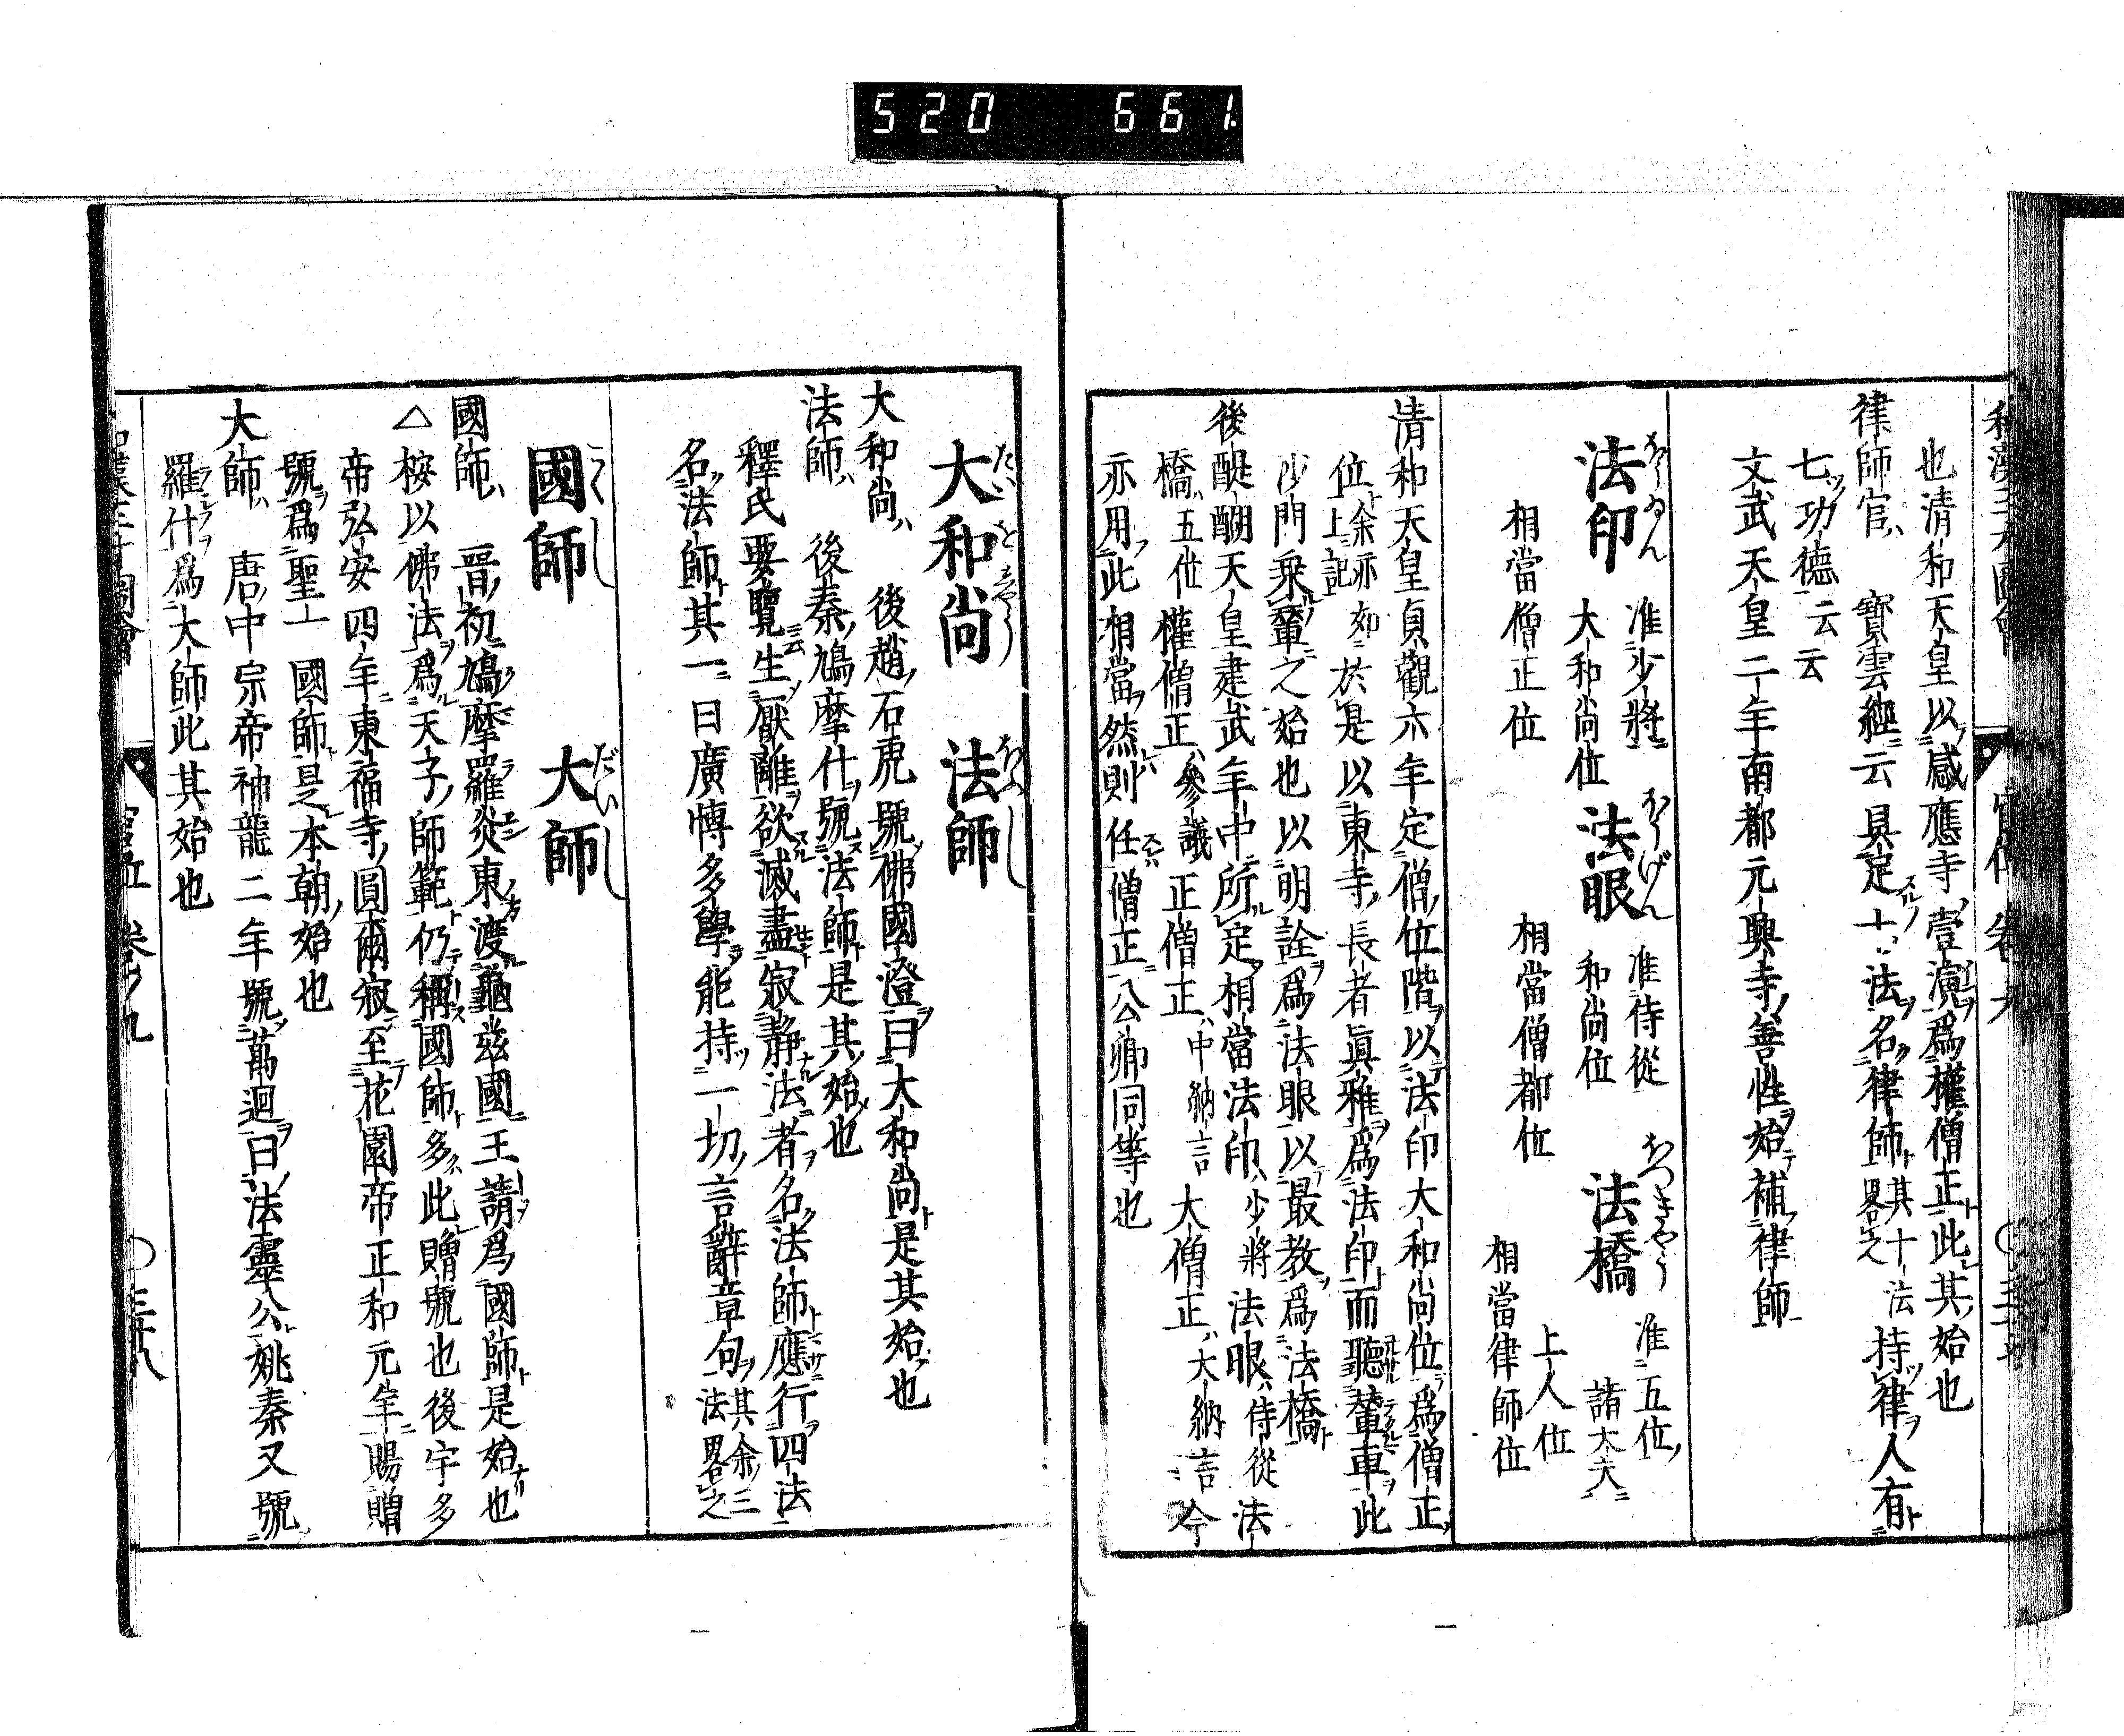 520 661
和漢三才圖會 官位 卷九
也清和天皇以感應寺壹演爲權僧正此其始也
律師官 寶雲經云具足十法名律師其十法畧之持律人有
七功德云云
文武天皇二年南都元興寺善性始補律師
法印 ほうゐん 准少將 大和尚位 相當僧正位
法眼 ほうげん 准侍從 和尚位 相當僧都位
法橋 ほつきやう 准五位諸大夫 上人位 相當律師位
清和天皇貞觀六年定僧位階以法印大和尚位爲僧正
位余亦如上記於是以東寺長者眞雅爲法印而聽輦車此
沙門乘輦之始也以明詮爲法眼以最教爲法橋
後醍醐天皇建武年中所定相當法印少將法眼侍從法
橋五位權僧正參議正僧正中納言大僧正大納言今
亦用此相當然則任僧正公卿同等也
大和尚 たいをしやう 法師 ほふし
大和尚 後趙石虎號佛國澄曰大和尚是其始也
法師 後秦鳩摩什號法師是其始也
釋氏要覽云生厭離欲滅盡寂静法者名法師應行四法
名法師其一曰廣博多學能持一切言辭章句其余三法畧之
國師 こくし 大師 だいし
國師 晋初鳩摩羅炎東渡龜玆國王請爲國師是始也
△按以佛法爲天子師範仍稱國師多此贈號也後宇多
帝弘安四年東福寺圓爾寂至花園帝正和元年賜贈
號爲聖一國師是本朝始也
大師 唐中宗帝神龍二年號萬迴曰法雲公姚秦又號
羅什爲大師此其始也
卷ノ九 〇三十八